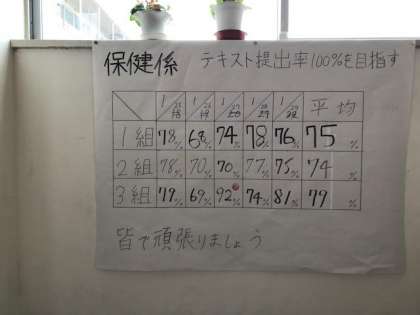 保健係 テキスト提出率100%を目指す
平均
1組 78% 68% 74% 78% 76% 75%
2組 78% 70% 70% 77% 75% 74%
3組 79% 69% 92% 74% 81% 79%
皆で頑張りましょう